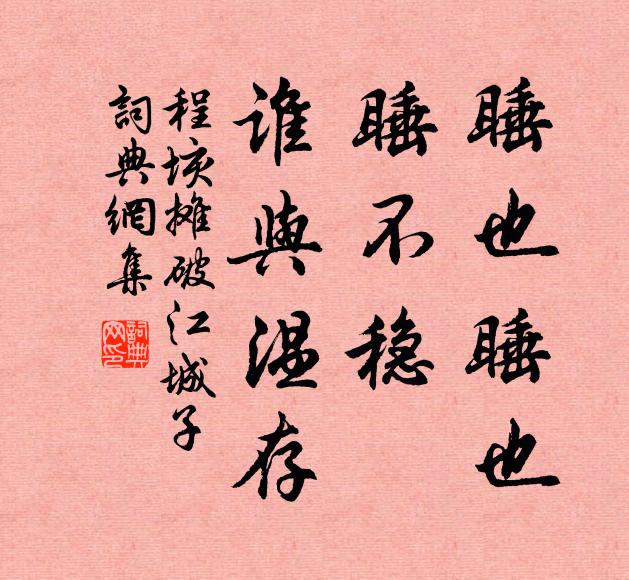 睡也睡也
睡不稳
谁與温存
程垓摊破江城子
詞典網集
詞典网印